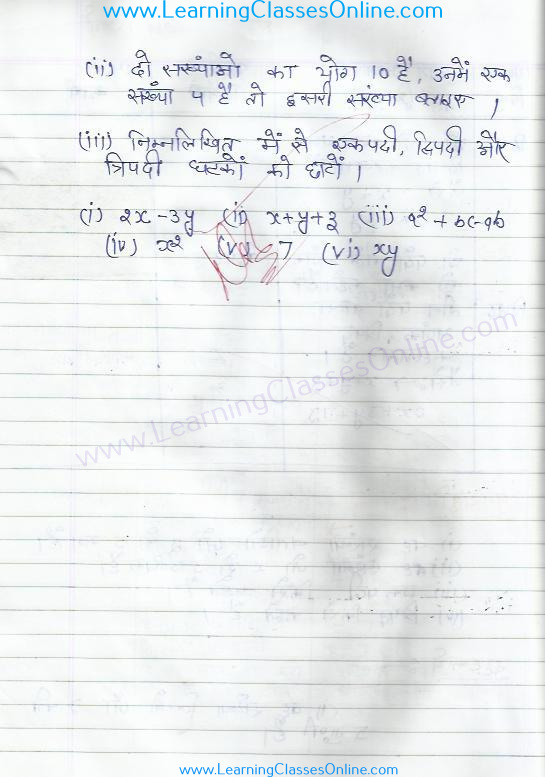 www.LearningClassesOnline.com
(ii) दो सख्यांओ का योग 10 है, उनमें एक
संख्या 4 है तो दूसरी संख्या बताइए ।
(iii) निम्नलिखित में से एकपदी, द्विपदी और
त्रिपदी घटकों को छाटों ।
(i) 2x - 3y (ii) x+y+z (iii) a2 + bc-ab
(iv) x2 (v) 7 (vi) xy
www.LearningClassesOnline.com
www.LearningClassesOnline.com